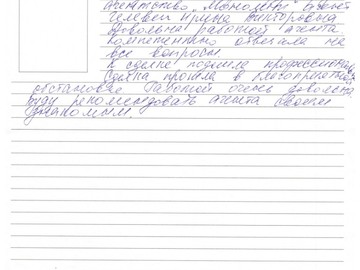 Агентство „Монолит" агент
Ирина Викторовна
Довольна работой агента.
Компетентно отвечала на
все вопросы.
К сделке подошла профессионально.
Сделка прошла в
обстановке Работой очень довольна
буду рекомендовать агента своим
знакомым.